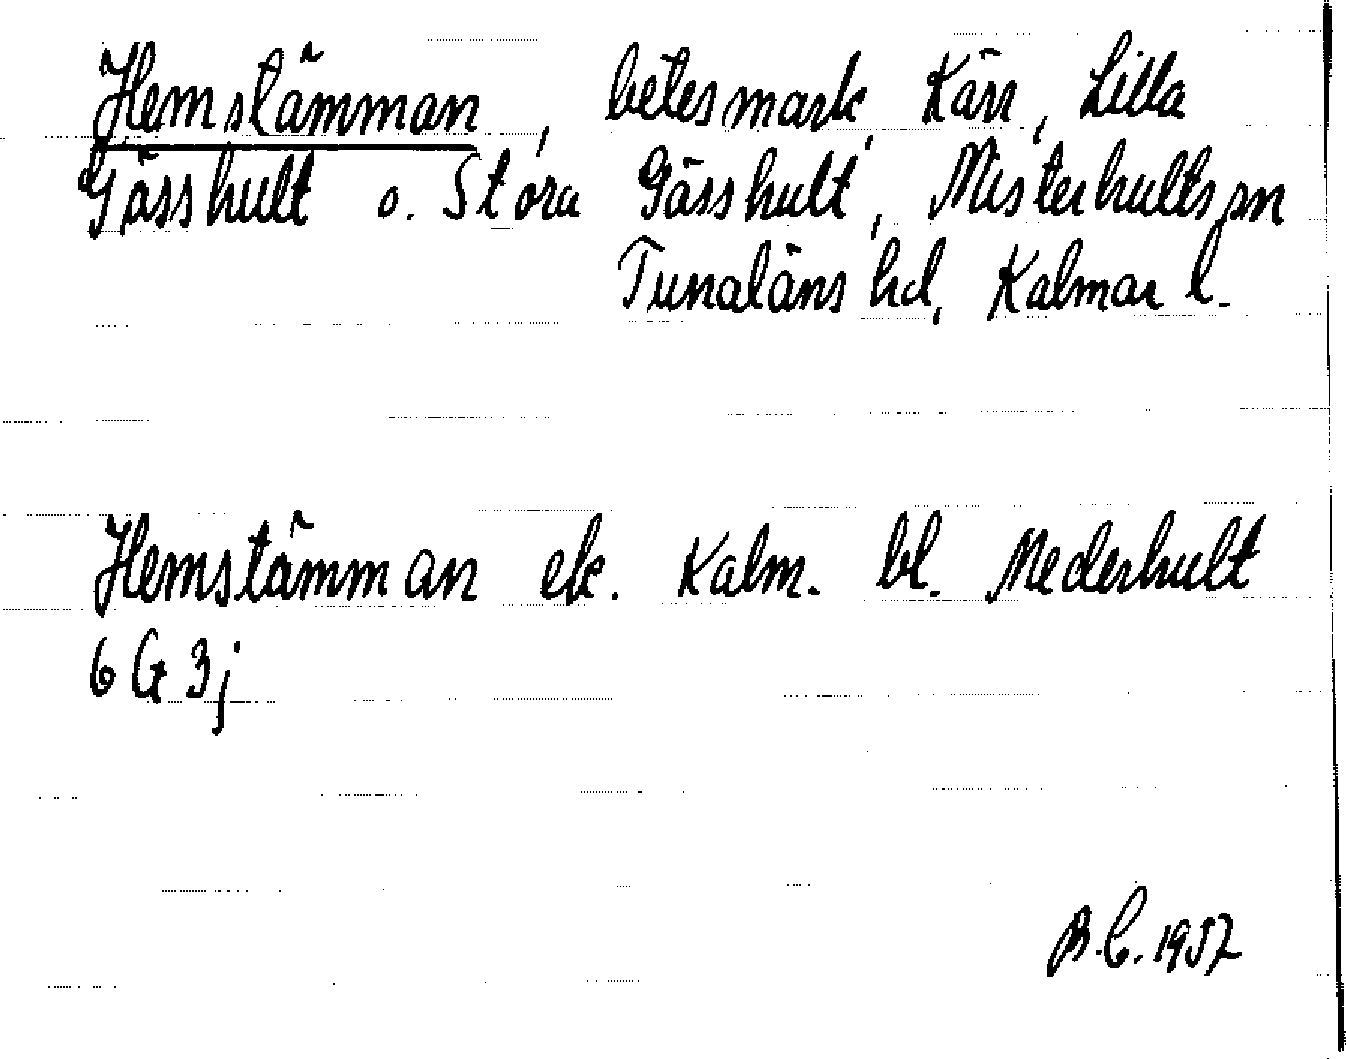 Hemstämman, betesmark, Kärr, Lilla
Gässhult o. Stora Gässhult, Misterhults sn
Tunaläns hd, Kalmar l.
Hemstämman ek. Kalm. bl. Mederhult
6 G 3j
B.C. 1957